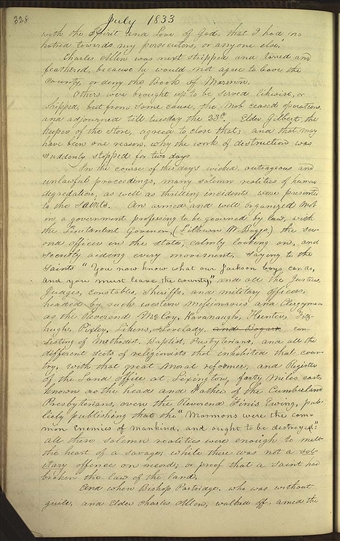 328
July 1833
with the spirit and love of God, that I had no
hatred towards my persecutors, or anyone else.
Charles Allen was next stripped and tarred and
feathered, because he would not agree to leave the
county, or deny the Book of Mormon.
Others were brought up to be served likewise, or
whipped, but from some cause, the mob ceased operations
and adjourned till tuesday the 23rd. Elder Gilbert, the
keeper of the Store, agreeing to close that; and that may
have been one reason, why the work of destruction was
suddenly stopped for two days.
In the course of this day's wicked, outrageous and
unlawful proceedings, many solemn realities of human
degradation, as well as thrilling incidents were presented
to the Saints. An armed and well organized Mob
in a government professing to be governed by law, with
the Lieutenant Governor, (Lilburn W. Boggs) the sec-
ond officer in the state, calmly looking on, and
secretly aiding every movement, saying to the
Saints "You now know what our Jackson boys can do,
and you must leave the county," and all the Justices
Judges, constables, Sheriffs, and military officers,
headed by such western Missionaries and Clergymen
as the Reverend McCoy, Kavanaugh, Hunter, Fitz-
hugh, Pixley, Likens, Lovelady, con-
sisting of Methodist, Baptist, Presbyterians, and all the
different sects of religionists that inhabited that coun-
try, with that great moral reformer, and Register
of the Land office at Lexington, forty Miles east
known as the head and Father of the Cumberland
Presbyterians, even the Reverend Finis Ewing, pub-
licly publishing that the "Mormons were the com-
mon Enemies of Mankind, and ought to be destroyed."
all these solemn realities were enough to melt
the heart of a Savage, while there was not a sol-
itary offence on record; or proof that a Saint had
broken the law of the land.
And when Bishop Partridge, who was without
guile, and Elder Charles Allen, walked off amid the